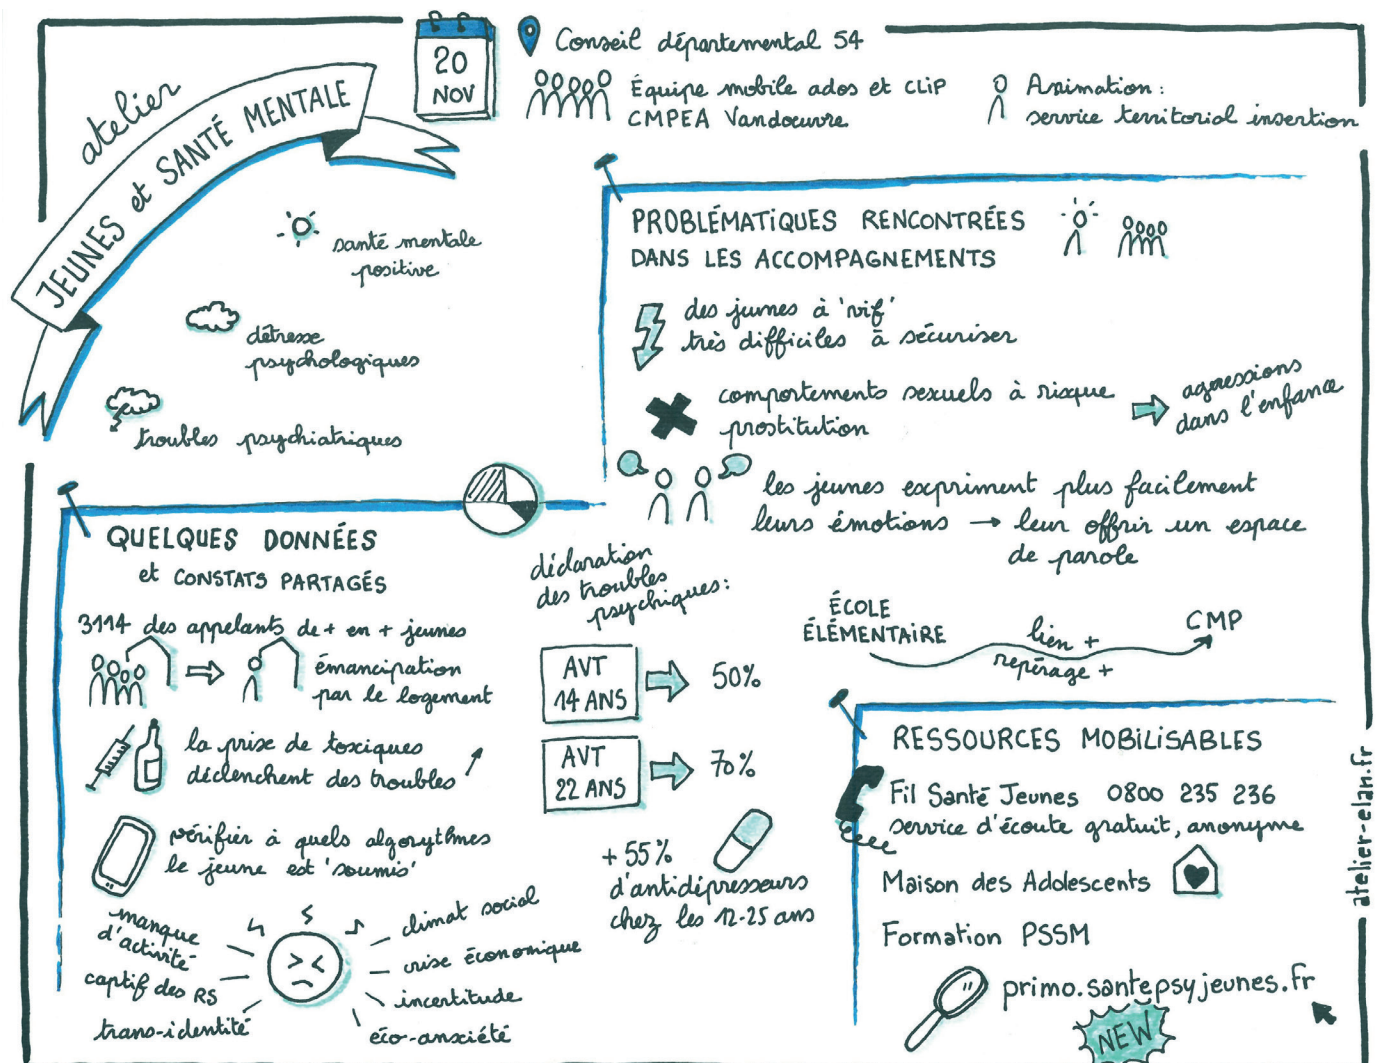 atelier
JEUNES et SANTÉ MENTALE
20
NOV
Conseil départemental 54
Équipe mobile ados et CLiP
CMPEA Vandœuvre
Animation :
service territorial insertion
santé mentale
positive
détresse
psychologiques
troubles psychiatriques
PROBLÉMATiQUES RENCONTRÉES
DANS LES ACCOMPAGNEMENTS
des jeunes à 'vif'
très difficiles à sécuriser
comportements sexuels à risque
prostitution
agressions
dans l'enfance
les jeunes expriment plus facilement
leurs émotions → leur offrir un espace
de parole
ÉCOLE
ÉLÉMENTAIRE
lien +
repérage +
CMP
QUELQUES DONNÉES
et CONSTATS PARTAGÉS
3114 des appelants de + en + jeunes
émancipation
par le logement
la prise de toxiques
déclenchent des troubles
vérifier à quels algorythmes
le jeune est 'soumis'
manque
d'activité
captif des RS
trans-identité
climat social
crise économique
incertitude
éco-anxiété
déclaration
des troubles
psychiques :
AVT
14 ANS
50%
AVT
22 ANS
70%
+55%
d'antidépresseurs
chez les 12-25 ans
RESSOURCES MOBiLiSABLES
Fil Santé Jeunes 0800 235 236
service d'écoute gratuit, anonyme
Maison des Adolescents
Formation PSSM
primo.santepsyjeunes.fr
NEW
atelier-elan.fr